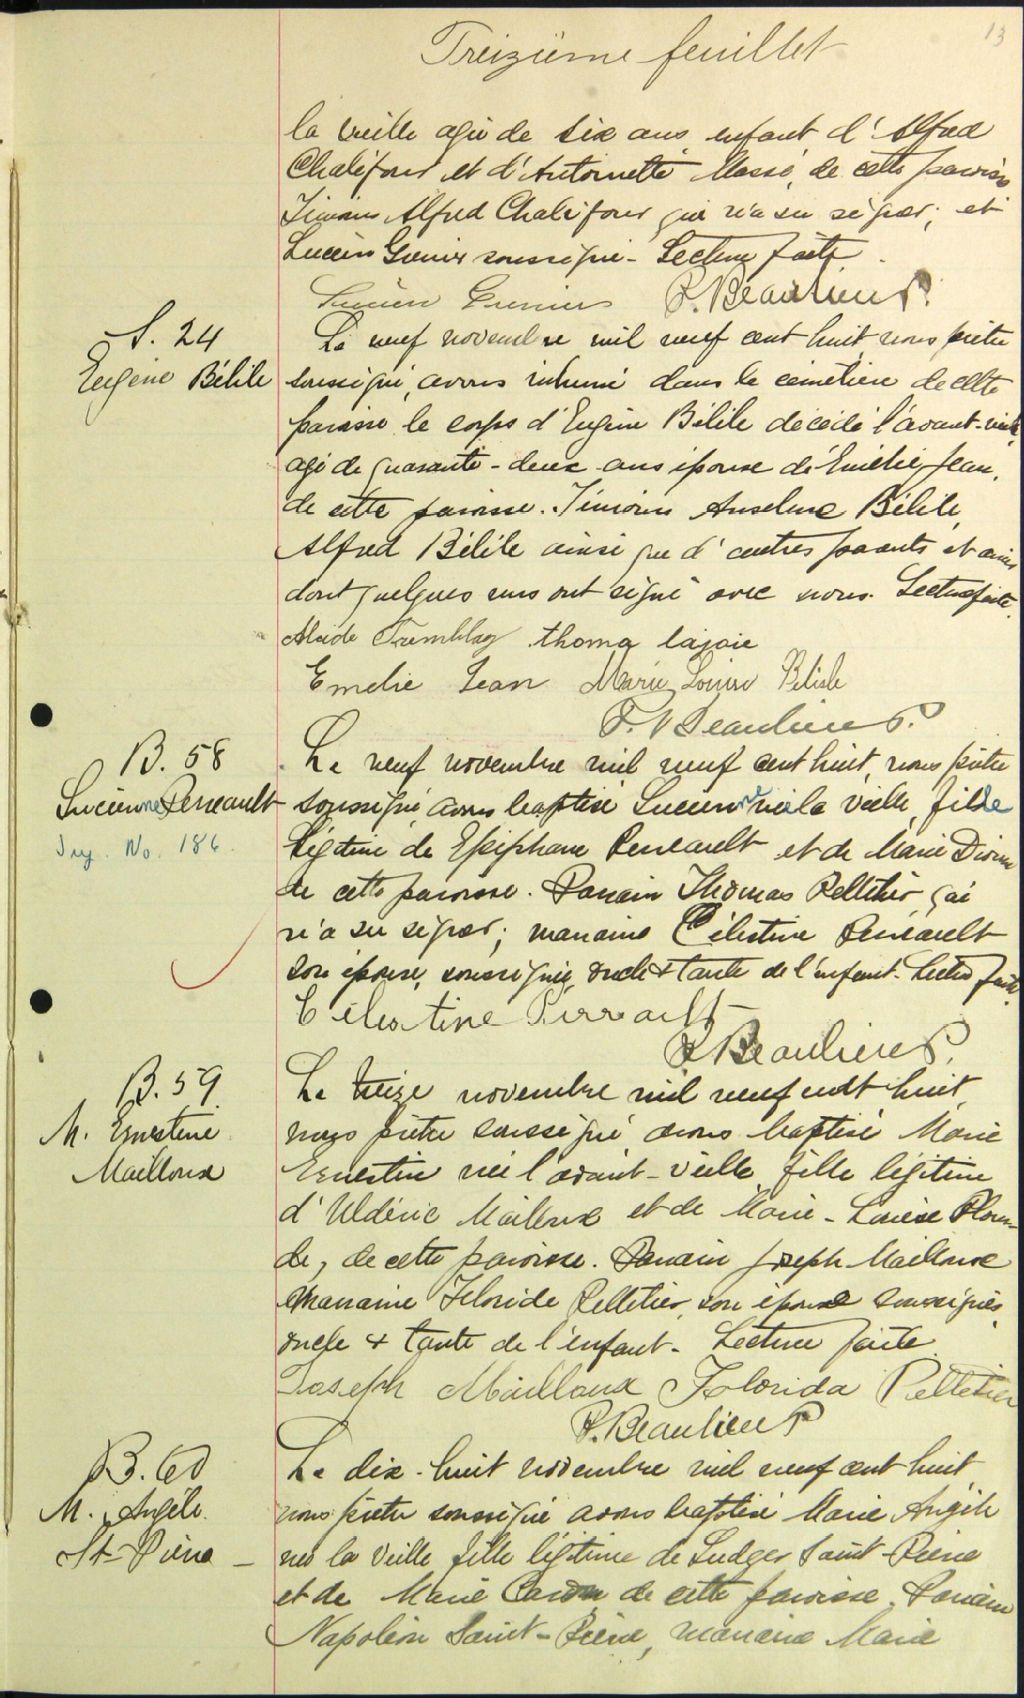 13
Treizième feuillet
la veille agé de six ans enfant d'Alfred
Chalifour et d'Antoinette Massé, de cette paroisse
Témoins Alfred Chalifour qui n'a su signer; et
Lucien Grenier soussigné - Lecture faite.
Lucien Grenier P. Beaulieu P.
S. 24
Eugène Bélile
Le neuf novembre mil neuf cent huit nous prêtre
soussigné, avons inhumé dans le cimetière de cette
paroisse le corps d'Eugène Bélile décédé l'avant-veille
agé de quarante-deux ans époux de Emélie Jean,
de cette paroisse. Témoins Anselme Bélile,
Alfred Bélile ainsi que d'autres parents et amis
dont quelques uns ont signé avec nous. Lecture faite.
Alcide Tremblay thoma lajoie
Emelie Jean Marie Louise Belisle
P. Beaulieu P.
B. 58
Lucienne Perreault
Reg. No. 186.
Le neuf novembre mil neuf cent huit, nous prêtre
soussigné avons baptisé Lucienne née la veille, fille
légitime de Epiphane Perreault et de Marie Dionne
de cette paroisse. Parrain Thomas Pelletier, qui
n'a su signer; marraine Célestine Perreault
son épouse, soussignée, oncle & tante de l'enfant. Lecture faite.
Célestine Perreault
P. Beaulieu P.
B. 59
M. Ernestine
Mailloux
Le treize novembre mil neuf cent huit,
nous prêtre soussigné avons baptisé Marie
Ernestine née l'avant-veille, fille légitime
d'Uldéric Mailloux et de Marie-Louise Plour-
de, de cette paroisse. Parrain Joseph Mailloux
marraine Floride Pelletier, son épouse soussignés,
oncle & tante de l'enfant. Lecture faite
Joseph Mailloux Florida Pelletier
P. Beaulieu P
B. 60
M. Angèle
St-Pierre -
Le dix-huit novembre mil neuf cent huit
nous prêtre soussigné avons baptisé Marie Angèle
née la veille fille légitime de Ludger Saint-Pierre
et de Marie Caron de cette paroisse. Parrain
Napoléon Saint-Pierre, marraine Marie